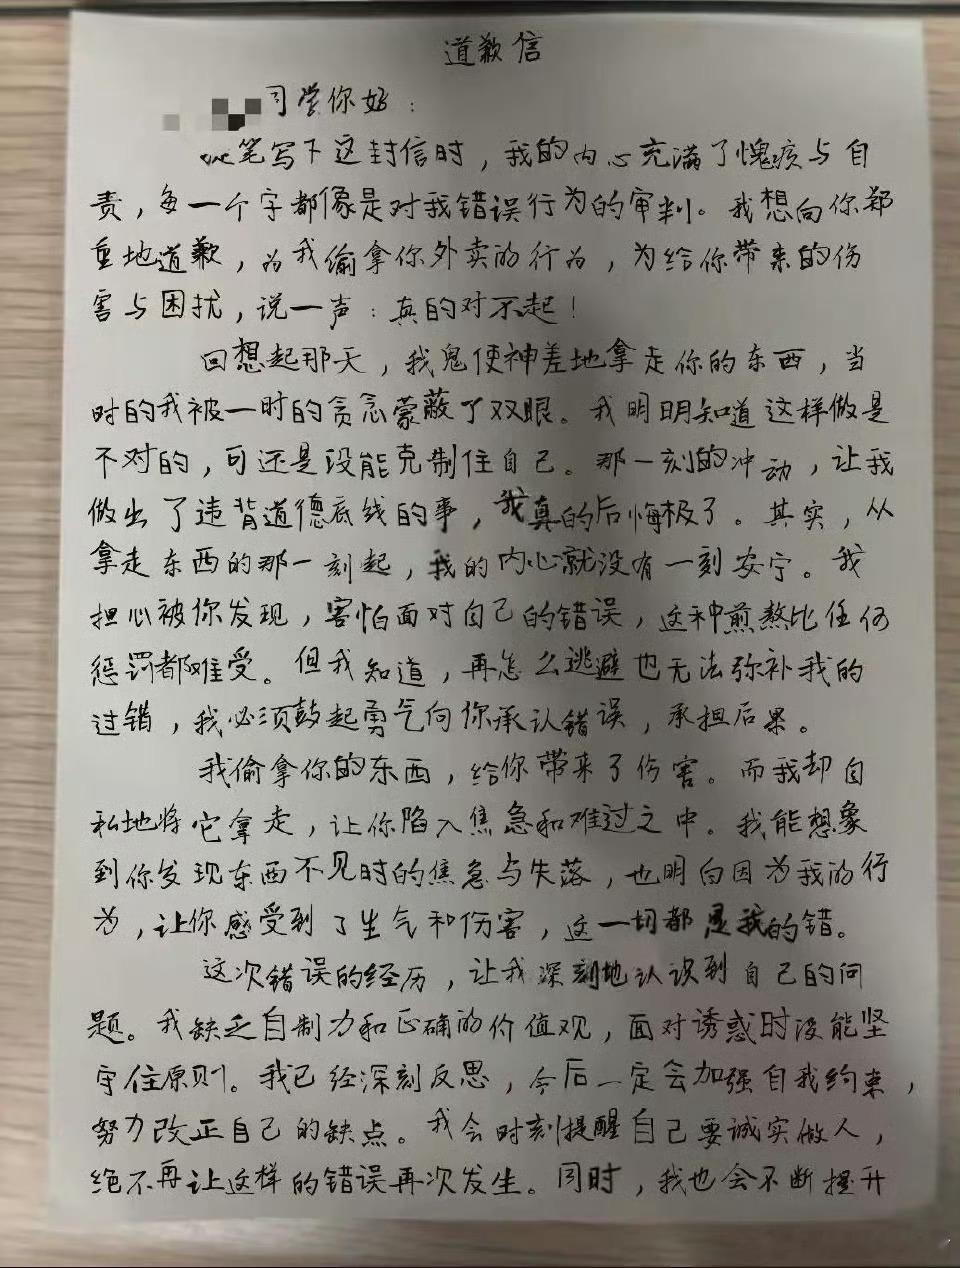 道歉信
同学你好：
笔写下这封信时，我的内心充满了愧疚与自
责，每一个字都像是对我错误行为的审判。我想向你郑
重地道歉，为我偷拿你外卖的行为，为给你带来的伤
害与困扰，说一声：真的对不起！
回想起那天，我鬼使神差地拿走你的东西，当
时的我被一时的贪念蒙蔽了双眼。我明明知道这样做是
不对的，可还是没能克制住自己。那一刻的冲动，让我
做出了违背道德底线的事，我真的后悔极了。其实，从
拿走东西的那一刻起，我的内心就没有一刻安宁。我
担心被你发现，害怕面对自己的错误，这种煎熬比任何
惩罚都难受。但我知道，再怎么逃避也无法弥补我的
过错，我必须鼓起勇气向你承认错误，承担后果。
我偷拿你的东西，给你带来了伤害。而我却自
私地将它拿走，让你陷入焦急和难过之中。我能想象
到你发现东西不见时的焦急与失落，也明白因为我的行
为，让你感受到了生气和伤害，这一切都是我的错。
这次错误的经历，让我深刻地认识到自己的问
题。我缺乏自制力和正确的价值观，面对诱惑时没能坚
守住原则。我已经深刻反思，今后一定会加强自我约束，
努力改正自己的缺点。我会时刻提醒自己要诚实做人，
绝不再让这样的错误再次发生。同时，我也会不断提升